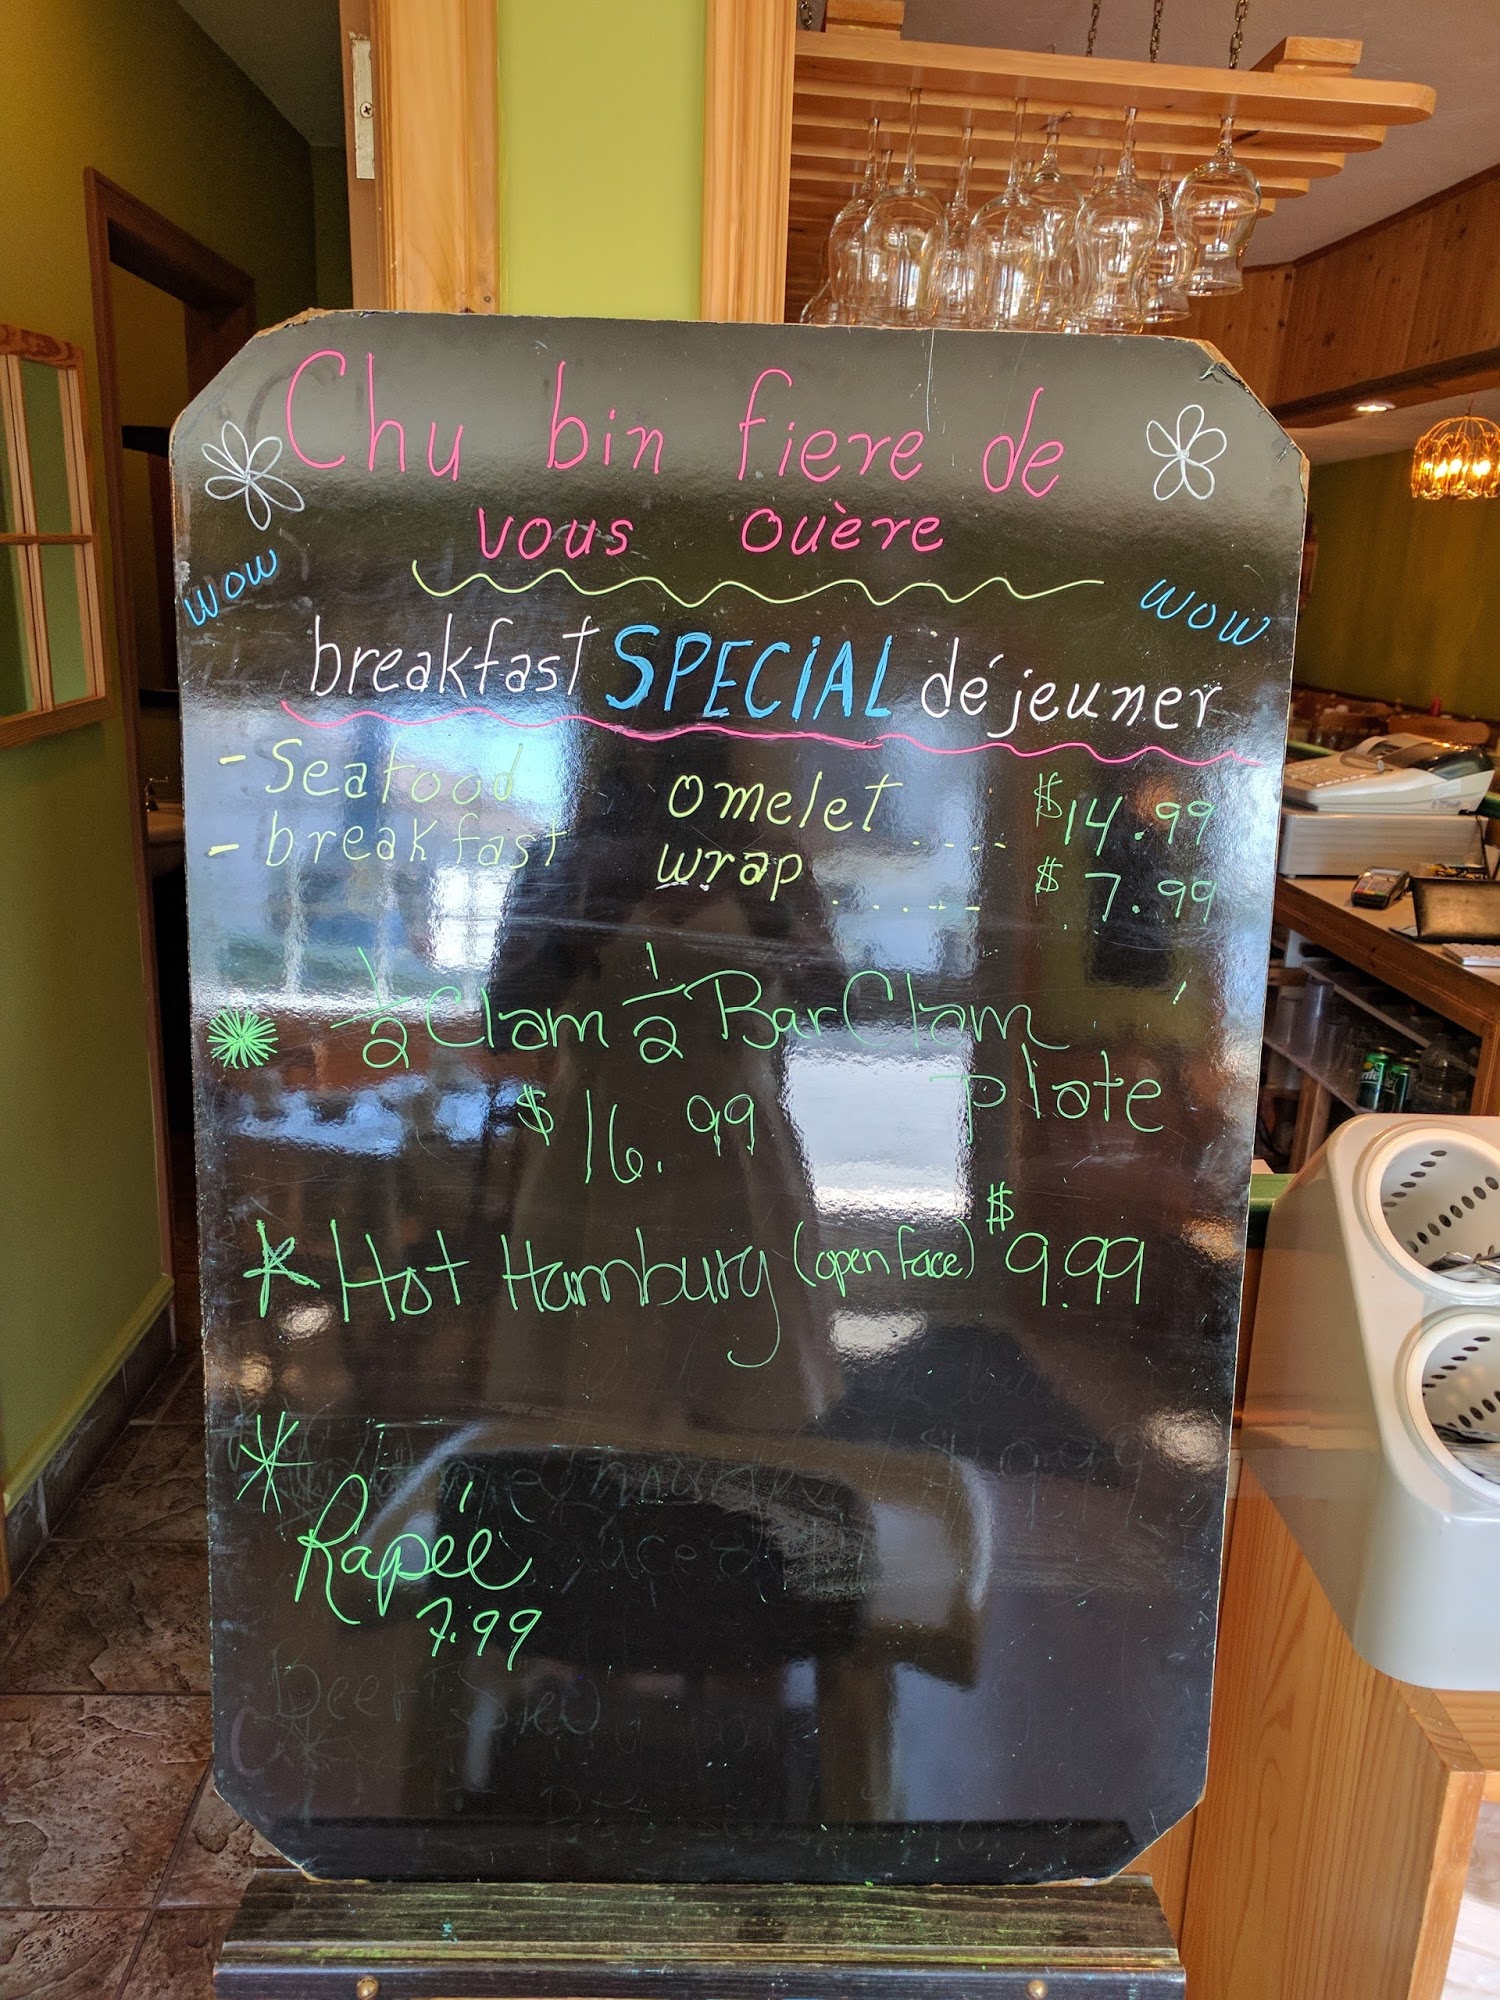 Chu bin fiere de
vous ouère
wow wow
breakfast SPECiAL déjeuner
- Seafood omelet .... $14.99
- breakfast wrap ...... $7.99
1/2 Clam 1/2 Bar Clam
plate
$16.99
* Hot Hamburg (open face) $9.99
* Rapée
7.99
Beef Stew